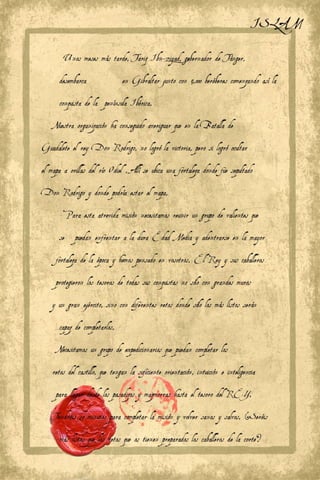 ISLAM
Unos meses más tarde, Tariq Ibn-ziyad, gobernador de Tánger,
desembarca en Gibraltar junto con bereberes comenzando así la
conquista de la península Ibérica.
Nuestra organización ha conseguido averiguar que en la Batalla de
Guadalete el rey Don Rodrigo, no logró la victoria, pero si logró ocultar
el mapa a orillas del río Odiel. Allí se ubica una fortaleza donde fue sepultado
Don Rodrigo y donde podría estar el mapa.
Para esta atrevida misión necesitamos reunir un grupo de valientes que
se puedan enfrentar a la dura Edad Media y adentrarse en la mayor
fortaleza de la época y hemos pensado en vosotros. El Rey y sus caballeros
protegieron los tesoros de todas sus conquistas no sólo con grandes muros
y un gran ejército, sino con diferentes retos donde sólo los más listos serán
capaz de completarlos.
Necesitamos un grupo de expedicionarios que puedan completar los
retos del castillo, que tengan la suficiente orientación, intuición e inteligencia
para llegar desde los pasadizos y mazmorras hasta el tesoro del REY.
minutos para completar la misión y volver sanos y salvos. ¿Seréis
más listos que los retos que os tienen preparados los caballeros de la corte?